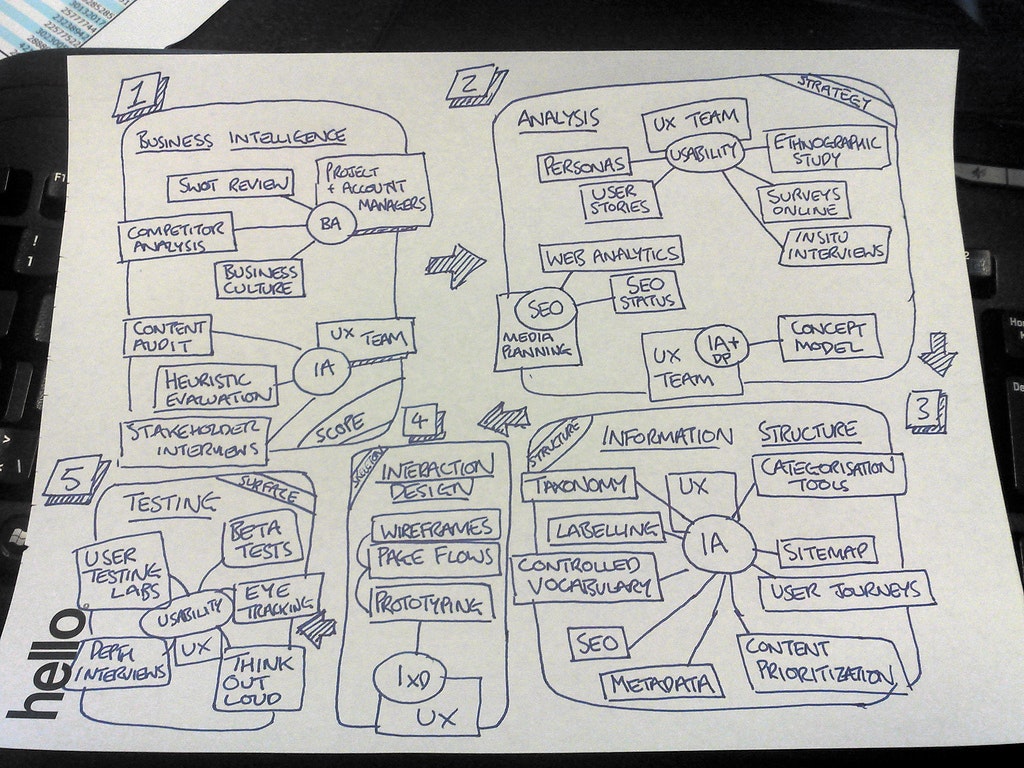 1
BUSINESS INTELLIGENCE
SWOT REVIEW
PROJECT
+ ACCOUNT
MANAGERS
BA
COMPETITOR
ANALYSIS
BUSINESS
CULTURE
CONTENT
AUDIT
UX TEAM
IA
HEURISTIC
EVALUATION
STAKEHOLDER
INTERVIEWS
SCOPE
2
STRATEGY
ANALYSIS
UX TEAM
USABILITY
ETHNOGRAPHIC
STUDY
PERSONAS
USER
STORIES
SURVEYS
ONLINE
INSITU
INTERVIEWS
WEB ANALYTICS
SEO
SEO
STATUS
MEDIA
PLANNING
UX
TEAM
IA+
DP
CONCEPT
MODEL
3
STRUCTURE
INFORMATION STRUCTURE
TAXONOMY
UX
CATEGORISATION
TOOLS
LABELLING
IA
SITEMAP
CONTROLLED
VOCABULARY
USER JOURNEYS
SEO
METADATA
CONTENT
PRIORITIZATION
4
INTERACTION
DESIGN
WIREFRAMES
PAGE FLOWS
PROTOTYPING
IXD
UX
5
SURFACE
TESTING
BETA
TESTS
USER
TESTING
LABS
EYE
TRACKING
USABILITY
UX
DEPTH
INTERVIEWS
THINK
OUT
LOUD
hello.